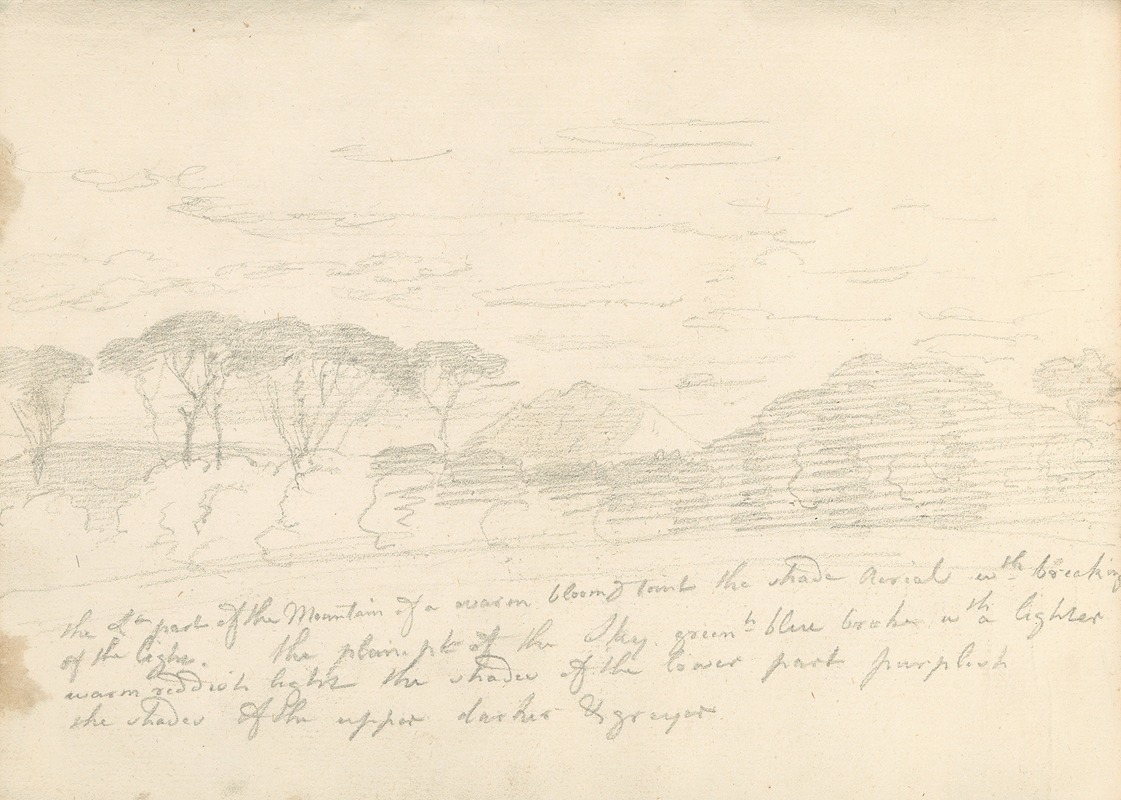 the Lt part of the Mountain of a warm bloomy teint the shade Aerial wth breaking
of the light. the plain pt of the Sky greenh blue broke wth a lighter
warm reddish light the shades of the lower part purplish
the shades of the upper darker & greyer